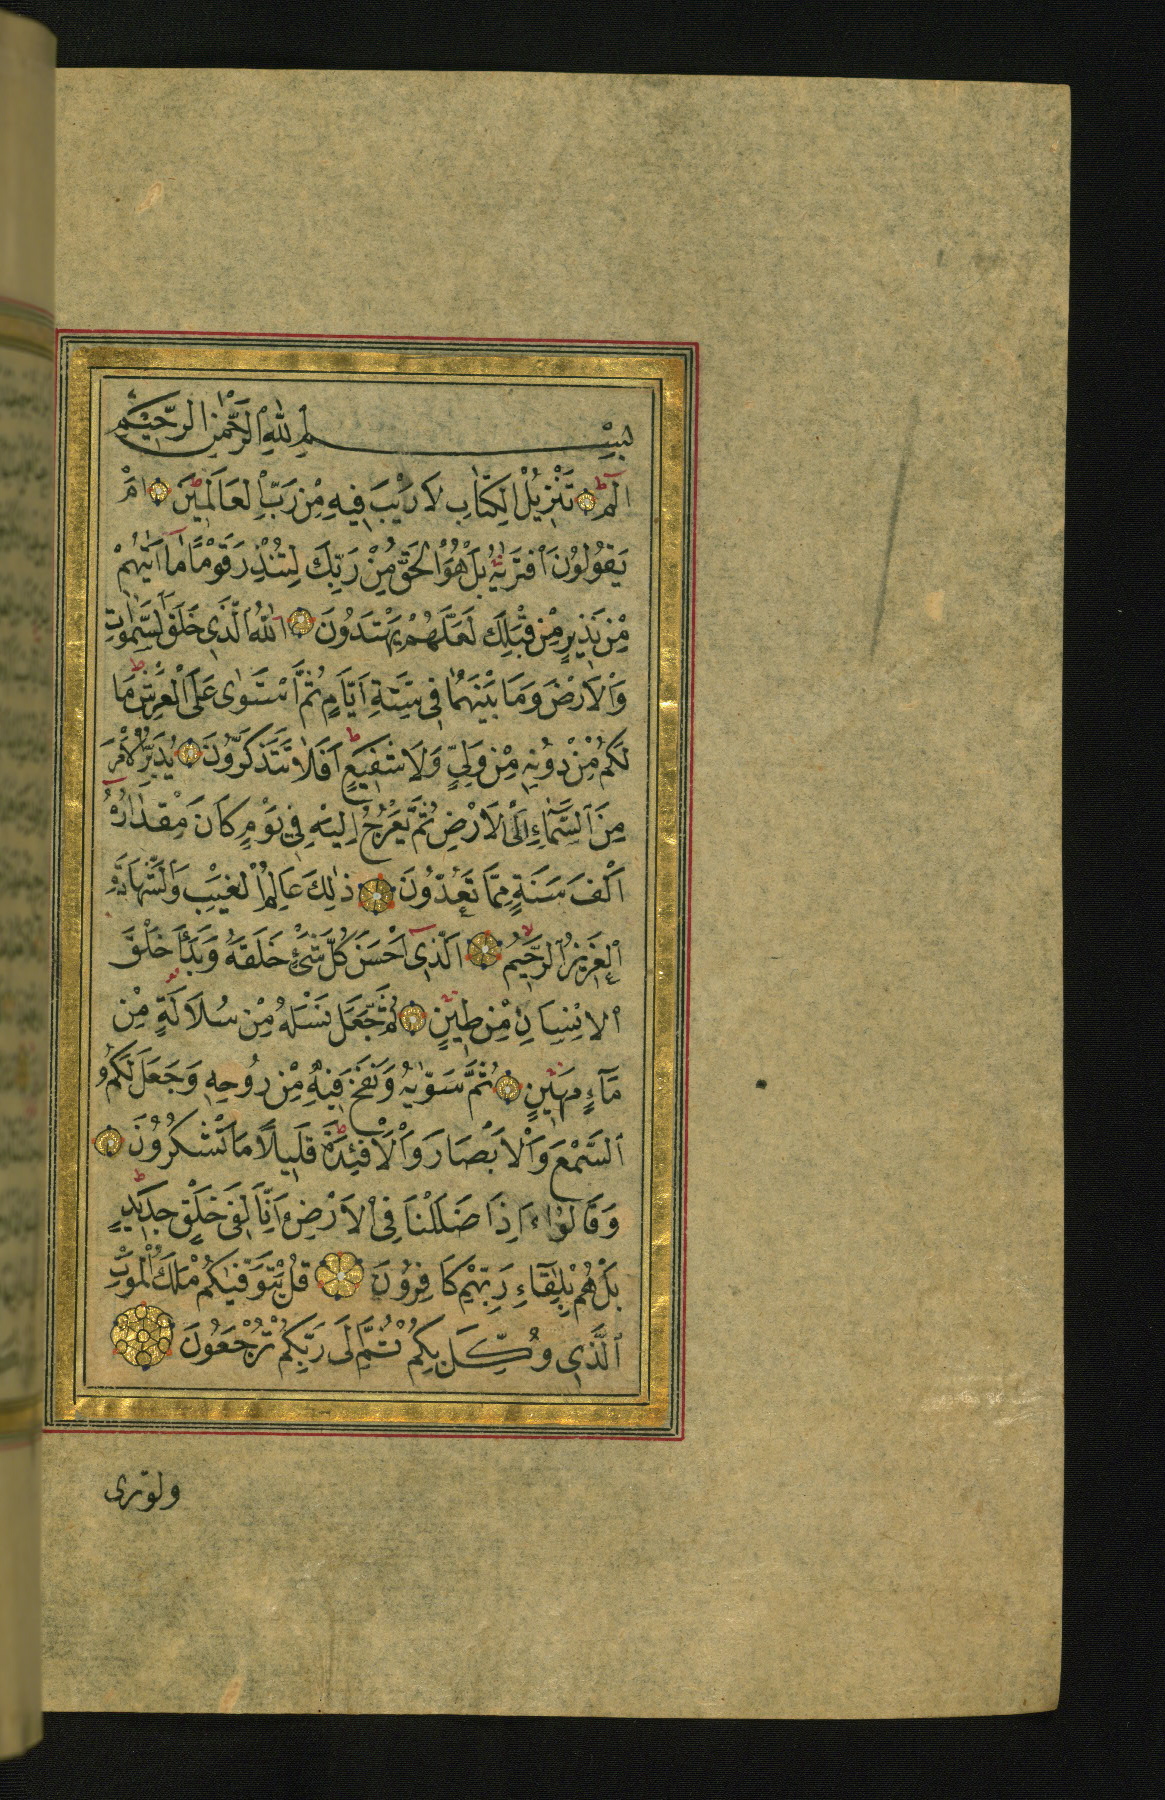 بِسْمِ اللّٰهِ الرَّحْمٰنِ الرَّحِيمِ
الٓمٓ تَنْزِيلُ الْكِتَابِ لَا رَيْبَ فِيهِ مِنْ رَبِّ الْعَالَمِينَ اَمْ
يَقُولُونَ افْتَرٰيهُ بَلْ هُوَ الْحَقُّ مِنْ رَبِّكَ لِتُنْذِرَ قَوْمًا مَٓا اَتٰيهُمْ
مِنْ نَذِيرٍ مِنْ قَبْلِكَ لَعَلَّهُمْ يَهْتَدُونَ اَللّٰهُ الَّذِي خَلَقَ السَّمٰوَاتِ
وَالْاَرْضَ وَمَا بَيْنَهُمَا فِي سِتَّةِ اَيَّامٍ ثُمَّ اسْتَوٰى عَلَى الْعَرْشِ مَا
لَكُمْ مِنْ دُونِهِ مِنْ وَلِيٍّ وَلَا شَفِيعٍ اَفَلَا تَتَذَكَّرُونَ يُدَبِّرُ الْاَمْرَ
مِنَ السَّمَٓاءِ اِلَى الْاَرْضِ ثُمَّ يَعْرُجُ اِلَيْهِ فِي يَوْمٍ كَانَ مِقْدَارُهُٓ
اَلْفَ سَنَةٍ مِمَّا تَعُدُّونَ ذٰلِكَ عَالِمُ الْغَيْبِ وَالشَّهَادَةِ
الْعَزِيزُ الرَّحِيمُ اَلَّذِٓي اَحْسَنَ كُلَّ شَيْءٍ خَلَقَهُ وَبَدَاَ خَلْقَ
الْاِنْسَانِ مِنْ طِينٍ ثُمَّ جَعَلَ نَسْلَهُ مِنْ سُلَالَةٍ مِنْ
مَٓاءٍ مَهِينٍ ثُمَّ سَوّٰيهُ وَنَفَخَ فِيهِ مِنْ رُوحِهِ وَجَعَلَ لَكُمُ
السَّمْعَ وَالْاَبْصَارَ وَالْاَفْئِدَةَ قَلِيلًا مَا تَشْكُرُونَ
وَقَالُٓوا ءَاِذَا ضَلَلْنَا فِي الْاَرْضِ ءَاِنَّا لَفِي خَلْقٍ جَدِيدٍ
بَلْ هُمْ بِلِقَٓاءِ رَبِّهِمْ كَافِرُونَ قُلْ يَتَوَفّٰيكُمْ مَلَكُ الْمَوْتِ
الَّذِي وُكِّلَ بِكُمْ ثُمَّ اِلٰى رَبِّكُمْ تُرْجَعُونَ
ولوترى